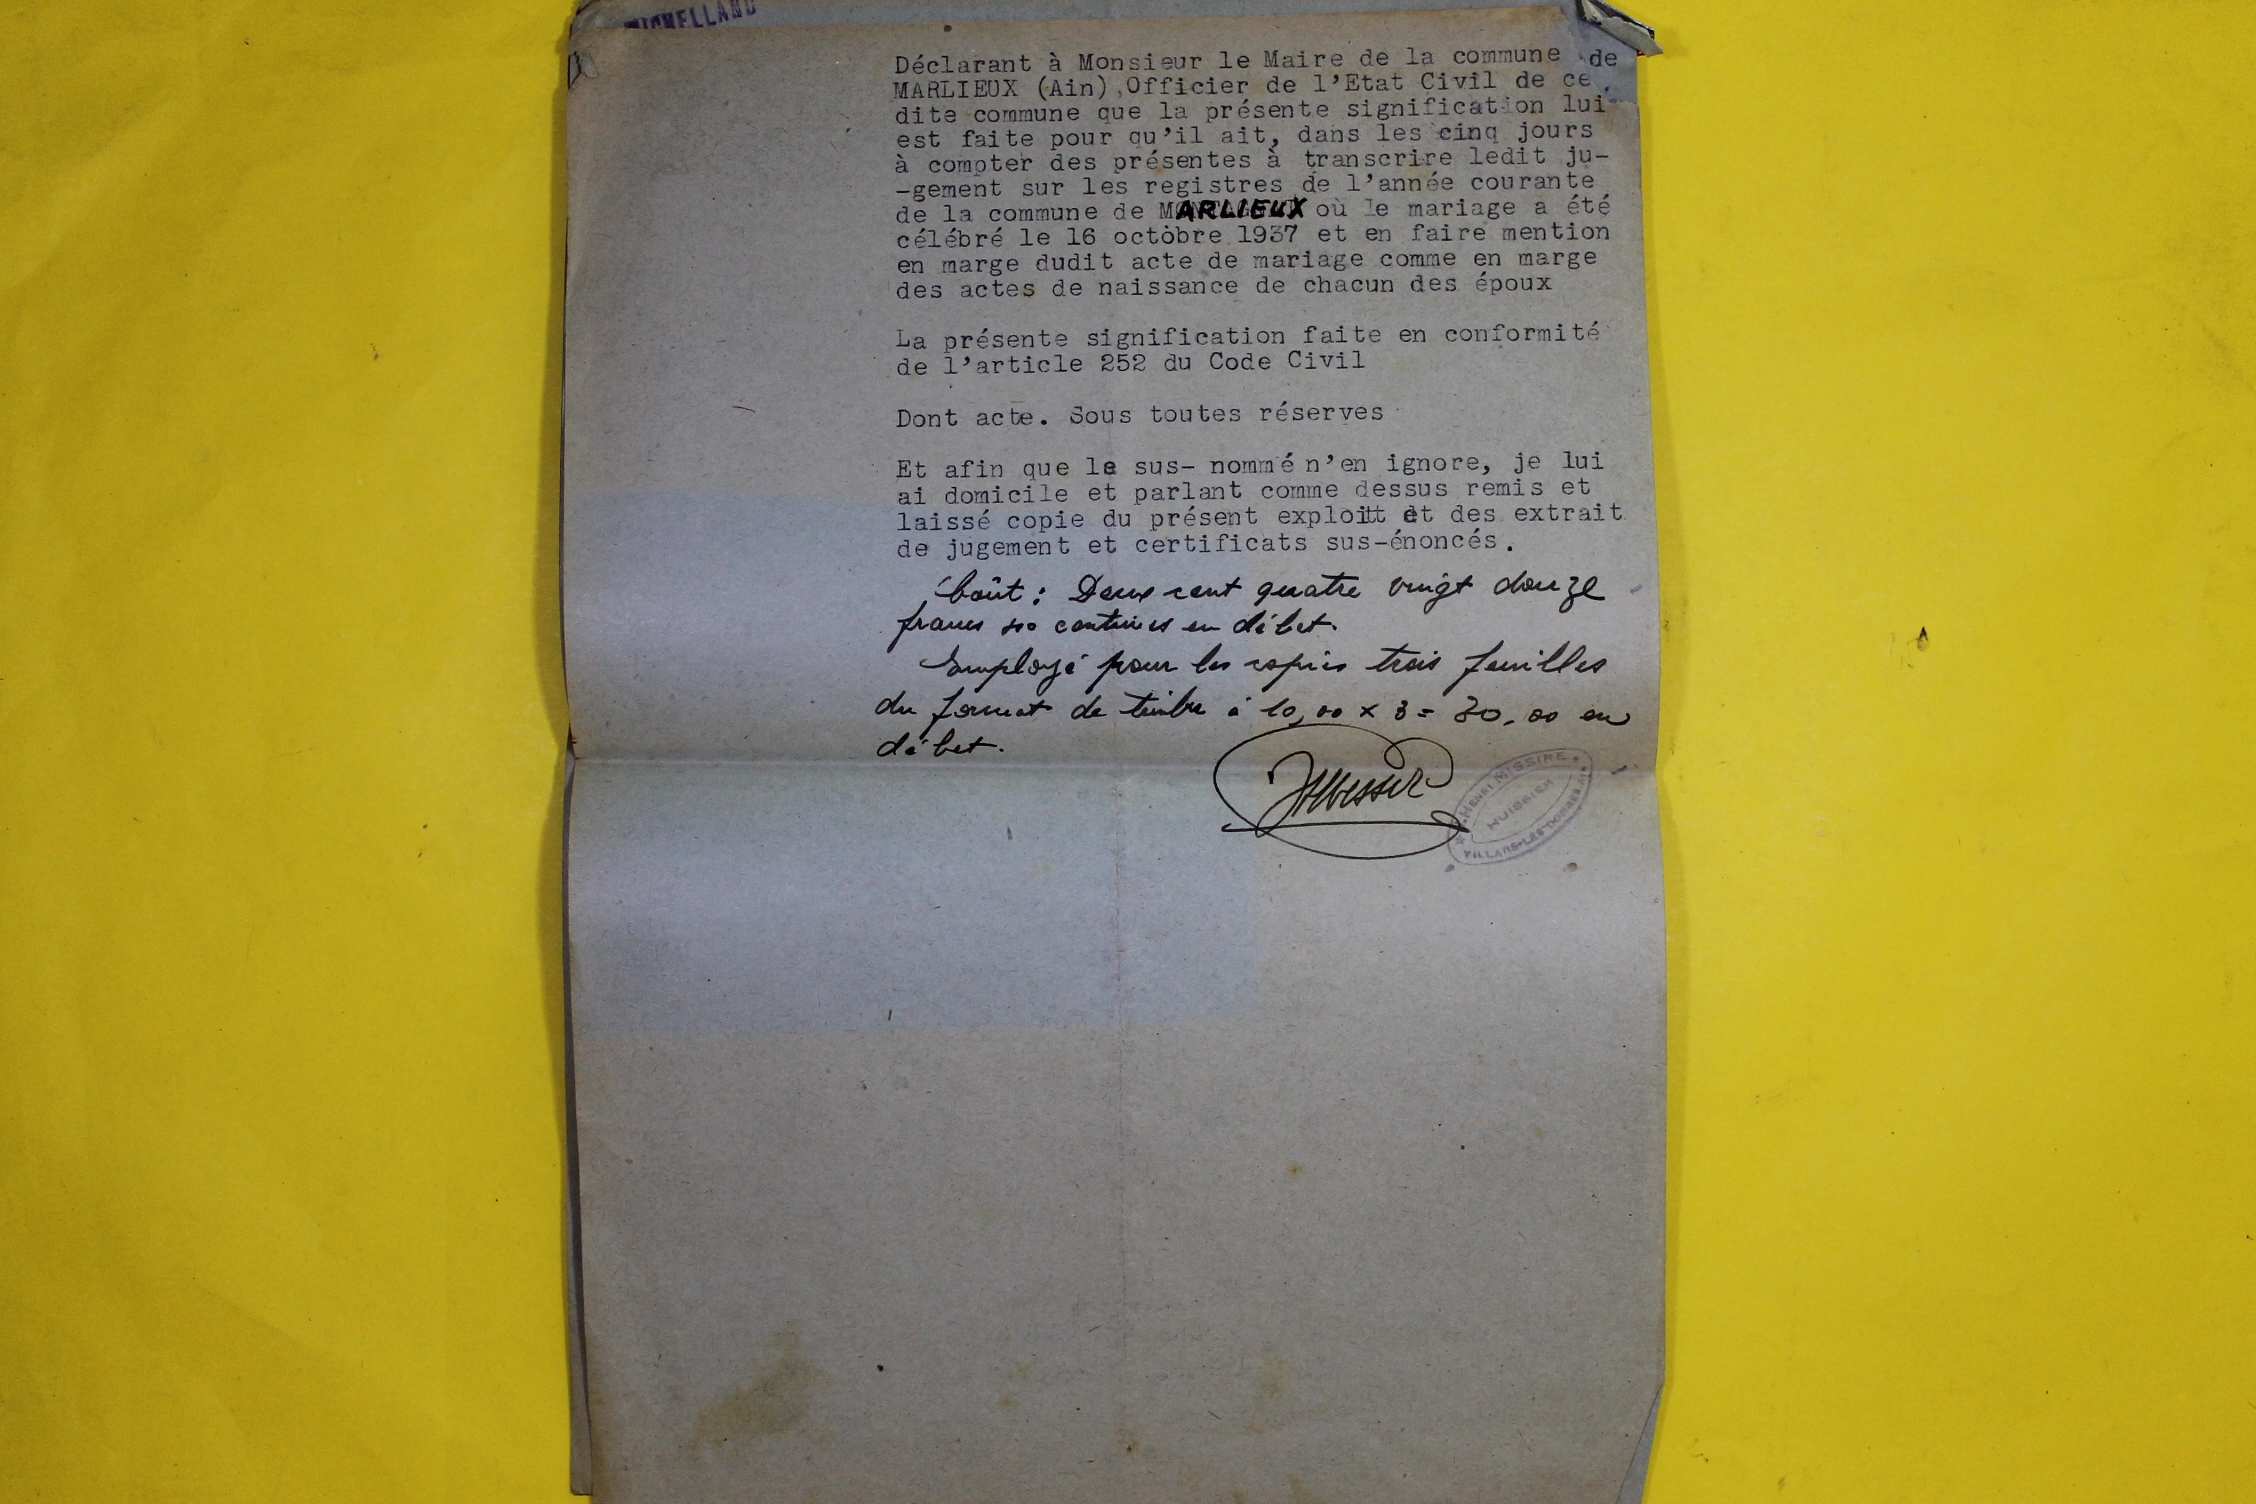 MICHELLAND
Déclarant à Monsieur le Maire de la commune de
MARLIEUX (Ain),Officier de l'Etat Civil de ce
dite commune que la présente signification lui
est faite pour qu'il ait, dans les cinq jours
à compter des présentes à transcrire ledit ju-
-gement sur les registres de l'année courante
de la commune de MARLIEUX où le mariage a été
célébré le 16 octobre 1937 et en faire mention
en marge dudit acte de mariage comme en marge
des actes de naissance de chacun des époux
La présente signification faite en conformité
de l'article 252 du Code Civil
Dont acte. Sous toutes réserves
Et afin que le sus- nommé n'en ignore, je lui
ai domicile et parlant comme dessus remis et
laissé copie du présent exploitt et des extrait
de jugement et certificats sus-énoncés.
Coût : Deux cent quatre vingt douze
francs centimes en débet.
Employé pour les copies trois feuilles
du format de timbre à 10,00 x 3 = 30,00 en
débet.
HENRI MISSIRE
HUISSIER
VILLARS-LES-DOMBES